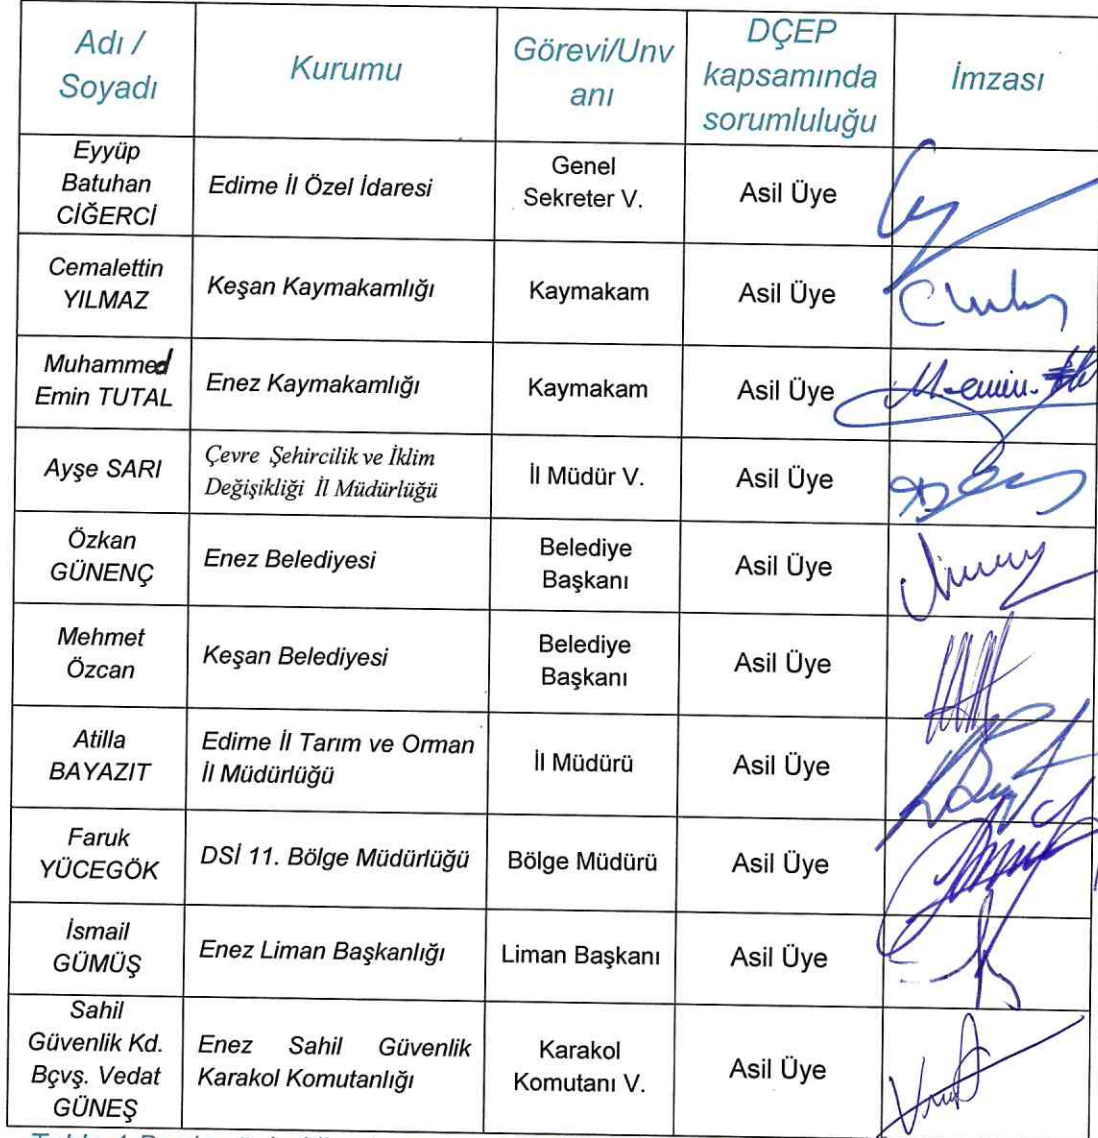 Adı /
Soyadı
Kurumu
Görevi/Unv
anı
DÇEP
kapsamında
sorumluluğu
İmzası
Eyyüp
Batuhan
CİĞERCİ
Edime İl Özel İdaresi
Genel
Sekreter V.
Asil Üye
Cemalettin
YILMAZ
Keşan Kaymakamlığı
Kaymakam
Asil Üye
Muhammed
Emin TUTAL
Enez Kaymakamlığı
Kaymakam
Asil Üye
M-emin-
Ayşe SARI
Çevre Şehircilik ve İklim
Değişikliği İl Müdürlüğü
İl Müdür V.
Asil Üye
Özkan
GÜNENÇ
Enez Belediyesi
Belediye
Başkanı
Asil Üye
Mehmet
Özcan
Keşan Belediyesi
Belediye
Başkanı
Asil Üye
Atilla
BAYAZIT
Edime İl Tarım ve Orman
İl Müdürlüğü
İl Müdürü
Asil Üye
Faruk
YÜCEGÖK
DSİ 11. Bölge Müdürlüğü
Bölge Müdürü
Asil Üye
İsmail
GÜMÜŞ
Enez Liman Başkanlığı
Liman Başkanı
Asil Üye
Sahil
Güvenlik Kd.
Bçvş. Vedat
GÜNEŞ
Enez Sahil Güvenlik
Karakol Komutanlığı
Karakol
Komutanı V.
Asil Üye